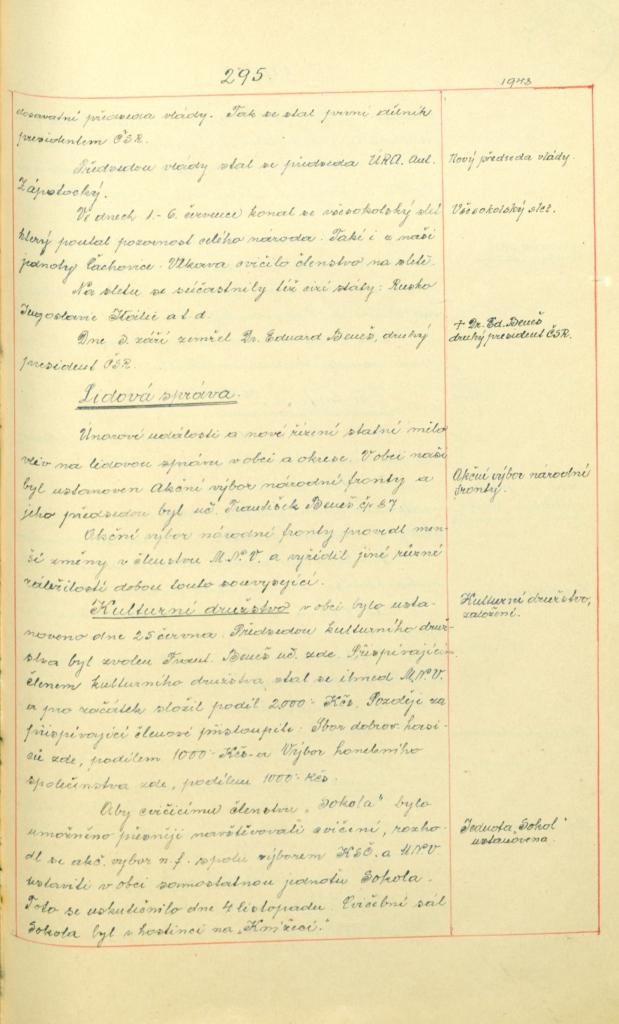 295.
1948
dosavatní předseda vlády. Tak se stal první dělník
presidentem ČSR.
Předsedou vlády stal se předseda ÚRA. Ant.
Zápotocký.
Nový předseda vlády.
Ve dnech 1.-6. července konal se všesokolský slet
který poutal pozornost celého národa. Také i z naší
jednoty Čachovice-Vlkava cvičilo členstvo na sletě.
Všesokolský slet.
Na sletu se súčastnily též cizí státy: Rusko
Jugoslavie Itálie a t. d.
Dne 3. září zemřel Dr. Eduard Beneš, druhý
president ČSR.
+ Dr. Ed. Beneš
druhý president ČSR.
Lidová správa.
Únorové události a nové řízení státní mělo
vliv na lidovou správu v obci a okrese. V obci naší
byl ustanoven Akční výbor národní fronty a
jeho předsedou byl uč. František Beneš čp 37.
Akční výbor národní
fronty.
Akční výbor národní fronty provedl men-
ší změny v členstvu M.N.V. a vyřídil jiné různé
záležitosti dobou touto souvysející.
Kulturní družstvo v obci bylo usta-
noveno dne 25 června. Předsedou kulturního druž-
stva byl zvolen Frant. Beneš uč. zde. Přispívajícím
členem kulturního družstva stal se ihned M.N.V.
a pro začátek složil podíl 2000- Kčs. Později za
přispívající členové přistoupili: Sbor dobrov. hasi-
čů zde, podílem 1000- Kčs a Výbor honebního
společenstva zde, podílem 1000- Kčs.
Kulturní družstvo,
založení.
Aby cvičícímu členstvu „Sokola" bylo
umožněno přesněji navštěvovati cvičení, rozho-
dl se akč. výbor n. f. spolu výborem KSČ. a M.N.V
ustaviti v obci samostatnou jednotu Sokola.
Toto se uskutečnilo dne 4 listopadu. Cvičební sál
Sokola byl v hostinci na „Knížecí."
Jednota „Sokol"
ustanovena.